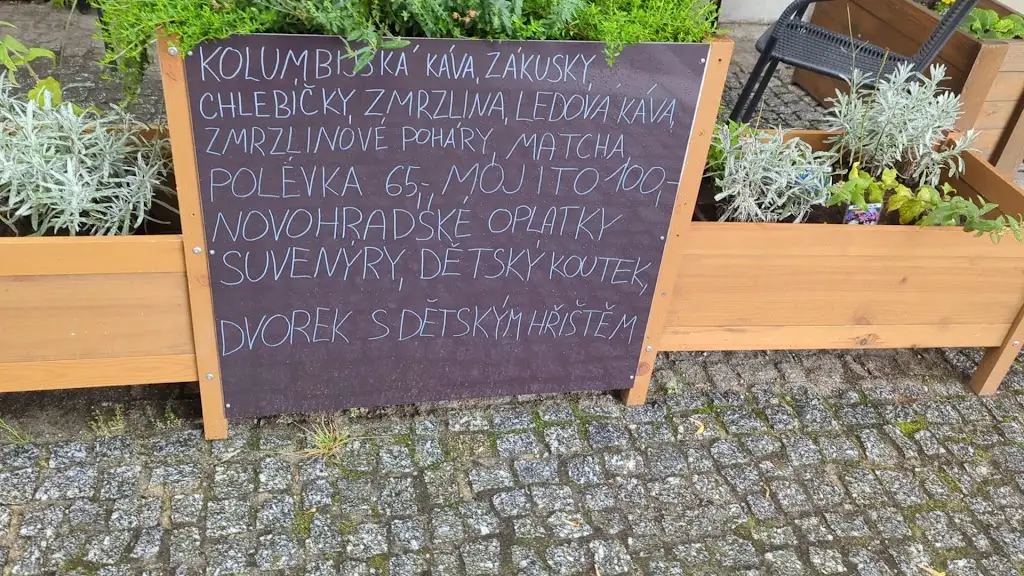 KOLUMBIJSKÁ KÁVA, ZÁKUSKY,
CHLEBÍČKY, ZMRZLINA, LEDOVÁ KÁVA,
ZMRZLINOVÉ POHÁRY, MATCHA,
POLÉVKA 65,-, MOJITO 100,-
NOVOHRADSKÉ OPLATKY
SUVENÝRY, DĚTSKÝ KOUTEK,
DVOREK S DĚTSKÝM HŘIŠTĚM